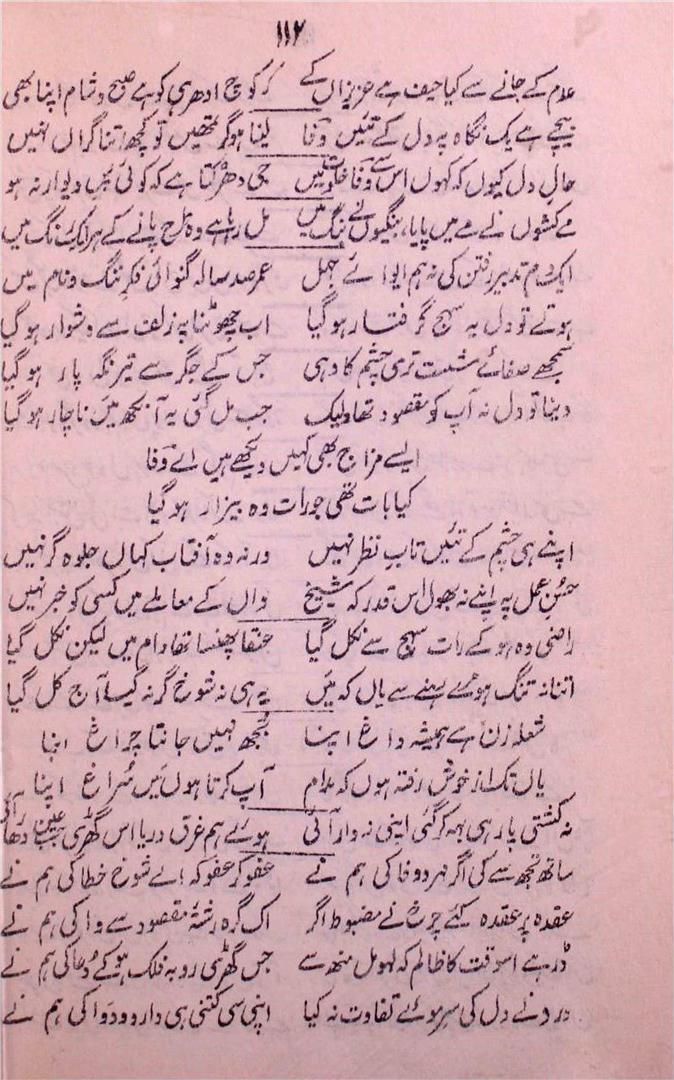 ۱۱۲
عدم کے جانے سے کیا حیف ہے عزیزاں کے کر کوچ ادھر ہی کو ہے صبح و شام اپنا بھی
بیچے ہے یک نگاہ پہ دل کے تئیں وفا لینا ہو گر تمھیں تو کچھ اتنا گراں نہیں
حالِ دل کیوں کہ کہوں اس سے وفا خلوت میں جی دھڑکتا ہے کہ کوئی پسِ دیوار نہ ہو
مے کشوں نے مے میں پایا، بنگیوں نے بنگ میں مل رہا ہے وہ طرح پانے کے ہر اک رنگ میں
ایک دم تدبیر رفتن کی نہ ہم اے وائے جہل عمر صد سالہ گنوائی فکرِ ننگ و نام میں
ہوتے تو دل یہ سہج گرفتار ہو گیا اب چھوٹنا پہ زلف سے دشوار ہو گیا
سمجھے صفائے شست تری چشم کا وہی جس کے جگر سے تیر نگہ پار ہو گیا
دینا تو دل نہ آپ کو مقصود تھا ولیک جب مل گئی یہ آنکھ میں ناچار ہو گیا
ایسے مزاج بھی کہیں دیکھے ہیں اے وفا
کیا بات تھی جو رات وہ بیزار ہو گیا
اپنے ہی چشم کے تئیں تابِ نظر نہیں ورنہ وہ آفتاب کہاں جلوہ گر نہیں
حسنِ عمل پہ اپنے نہ بھول اس قدر کہ شیخ واں کے معاملے میں کسی کو خبر نہیں
راضی وہ ہو کے رات سہج سے نکل گیا عنقا پھنسا تھا دام میں لیکن نکل گیا
اتنا نہ تنگ ہو مرے رہنے سے یاں کہ میں یہ ہی نہ شوخ گر نہ گیا آج کل گیا
شعلہ زن ہے ہمیشہ داغ اپنا بجھ نہیں جانتا چراغ اپنا
یاں تک از خویش رفتہ ہوں کہ مدام آپ کرتا ہوں میں سراغ اپنا
نہ کشتی پار ہی بہہ کر گئی اپنی نہ وار آئی ہوئے ہم غرق دریا اس گھڑی جب عین دھار آئی
ساتھ تجھ سے کی اگر مہر و وفا کی ہم نے عفو کر عفو کہ اے شوخ خطا کی ہم نے
عقدہ پر عقدہ کیے چرخ نے مضبوط اگر اک گرہ رشتۂ مقصود سے وا کی ہم نے
ڈر ہے اس وقت کا ظالم کہ لہو مل منھ سے جس گھڑی رو بہ فلک ہو کے دعا کی ہم نے
درد نے دل کی سرِ موئے تفاوت نہ کیا اپنی سی کتنی ہی دارو و دوا کی ہم نے